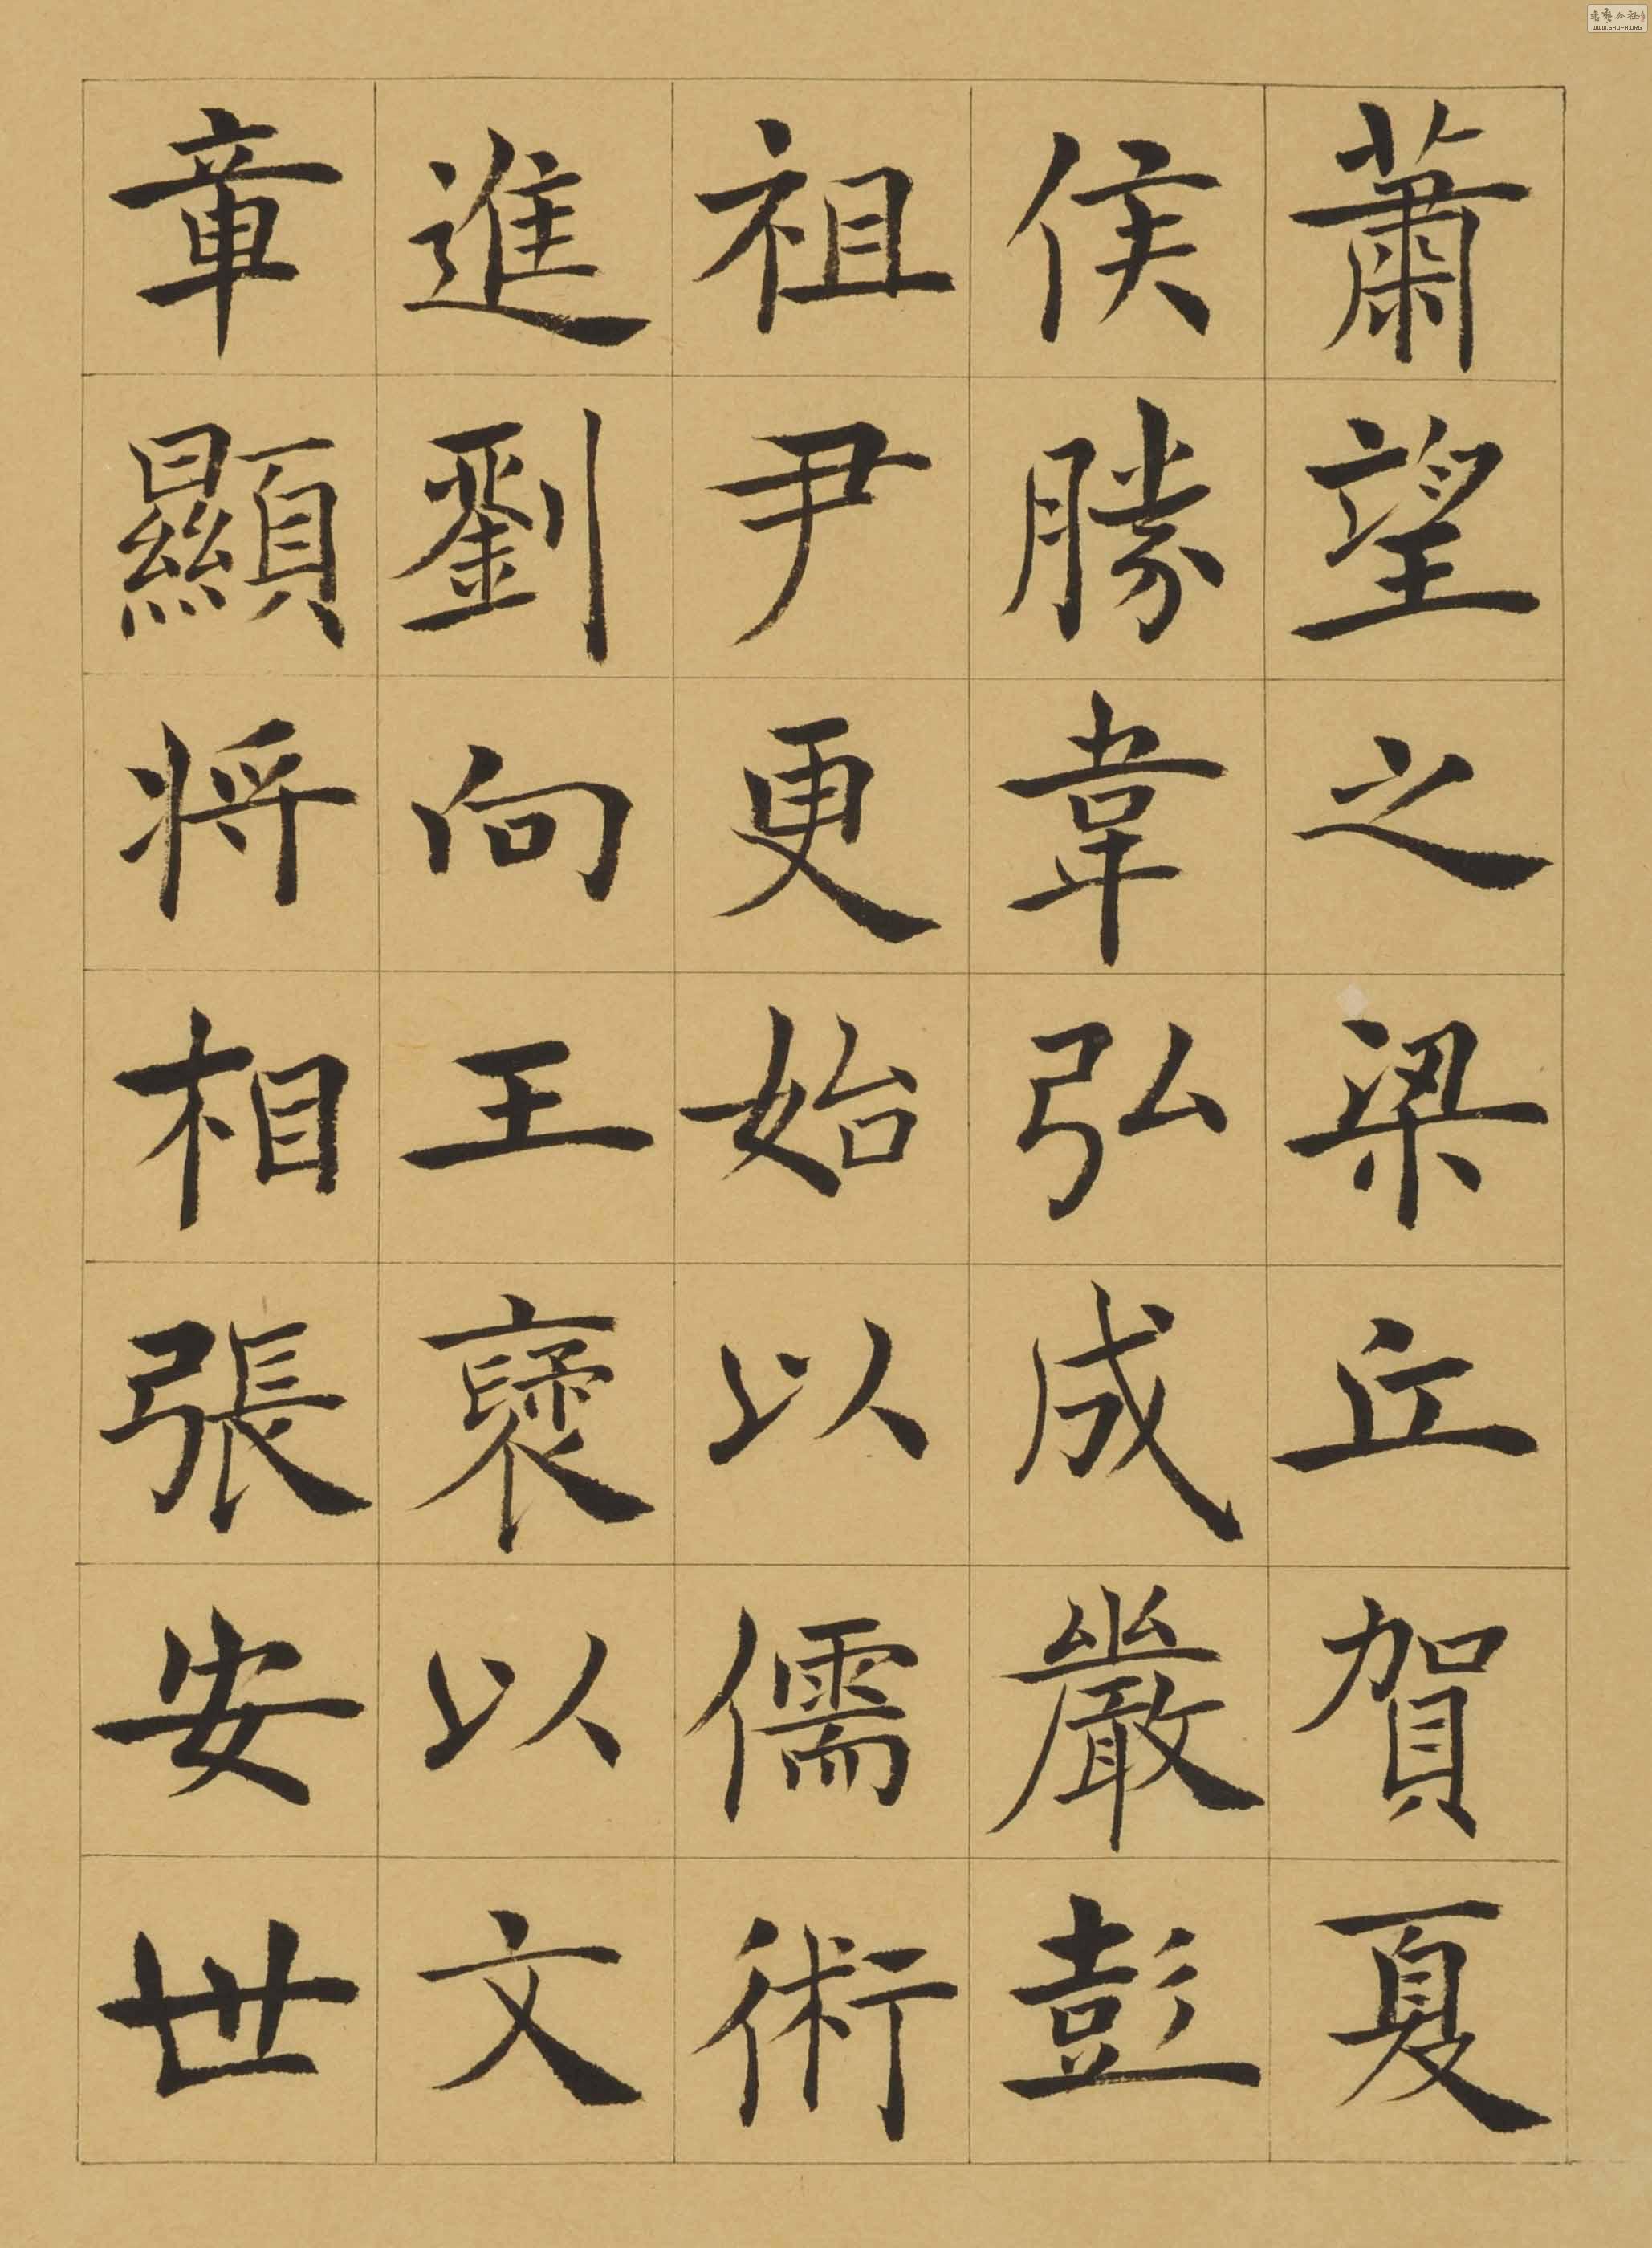 蕭望之梁丘賀夏
侯勝韋弘成嚴彭
祖尹更始以儒術
進劉向王褒以文
章顯將相張安世
WWW.SHUFA.ORG